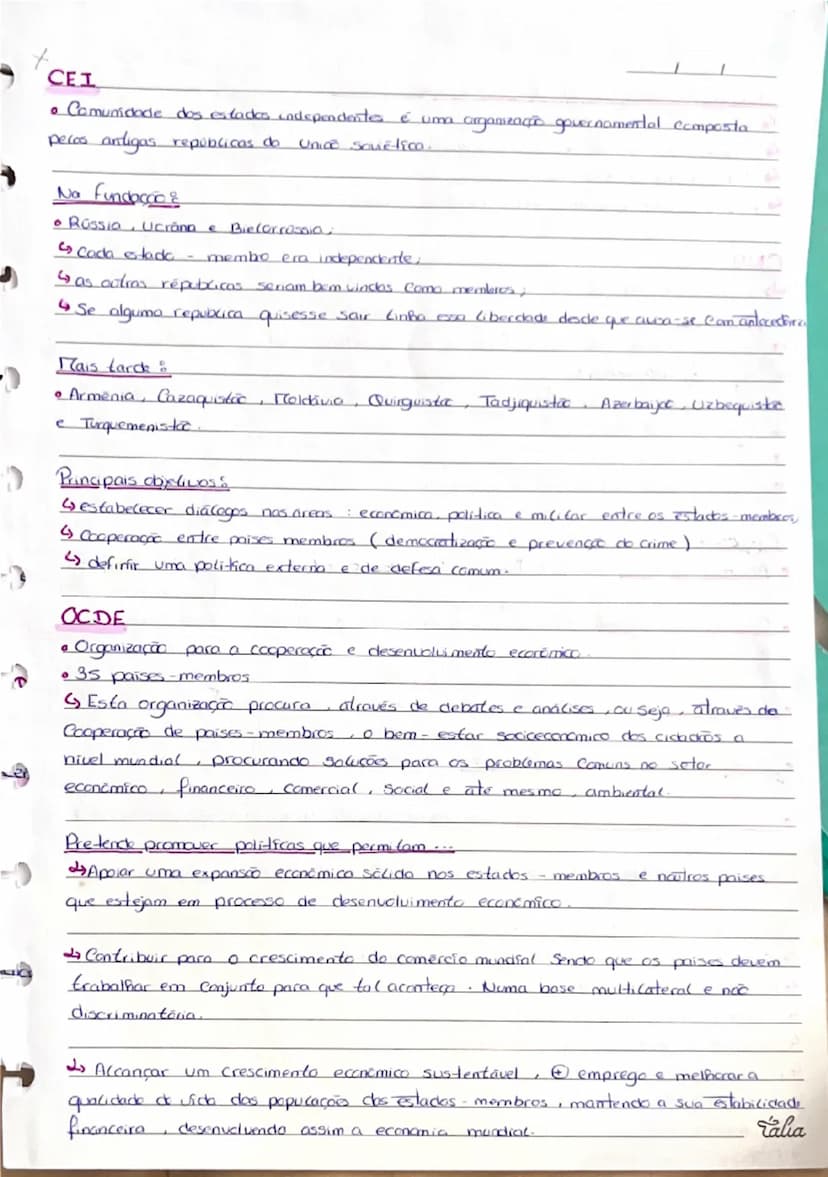 CEI
• Comunidade dos estados independentes é uma organização governamental composta
pelas antigas repúblicas da União soviética.
Na fundação:
• Rússia, Ucrâna e Bielorrússia;
↳ Cada estado - membo era independente;
↳ as outras républicas seriam bem vindas como membros;
↳ Se alguma republica quisesse sair tinha essa liberdade desde que avisa-se com
Mais tarde:
• Arménia, Cazaquistão, Moldávia, Quirguistão, Tadjiquistão, Azerbaijão, Uzbequistão
e Turquemenistão.
Principais objetivos:
↳ estabelecer diálogos nas áreas: económica, politica e militar entre os estados-membros;
↳ Cooperação entre paises membros (democratização e prevenção do crime)
↳ definir uma politica externa e de defesa comum.
OCDE
• Organização para a cooperação e desenvolvimento económico.
• 35 paises-membros
↳ Esta organização procura, através de debates e análises, ou seja, através da
Cooperação de paises-membros, o bem-estar socioeconómico dos cidadãos a
nivel mundial, procurando soluções para os problemas comuns no setor
económico, financeiro, comercial, social e até mesmo, ambiental.
Pretende promover politicas que permitam...
↳ Apoiar uma expansão económica sólida nos estados-membros e noutros paises
que estejam em processo de desenvolvimento económico.
↳ Contribuir para o crescimento do comércio mundial sendo que os paises devem
trabalhar em conjunto para que tal aconteça. Numa base multilateral e não
discriminatória.
↳ Alcançar um crescimento económico sustentável, ⊕ emprego e melhorar a
qualidade de vida das população dos estados-membros, mantendo a sua estabilidade
financeira, desenvolvendo assim a economia mundial.
Tália